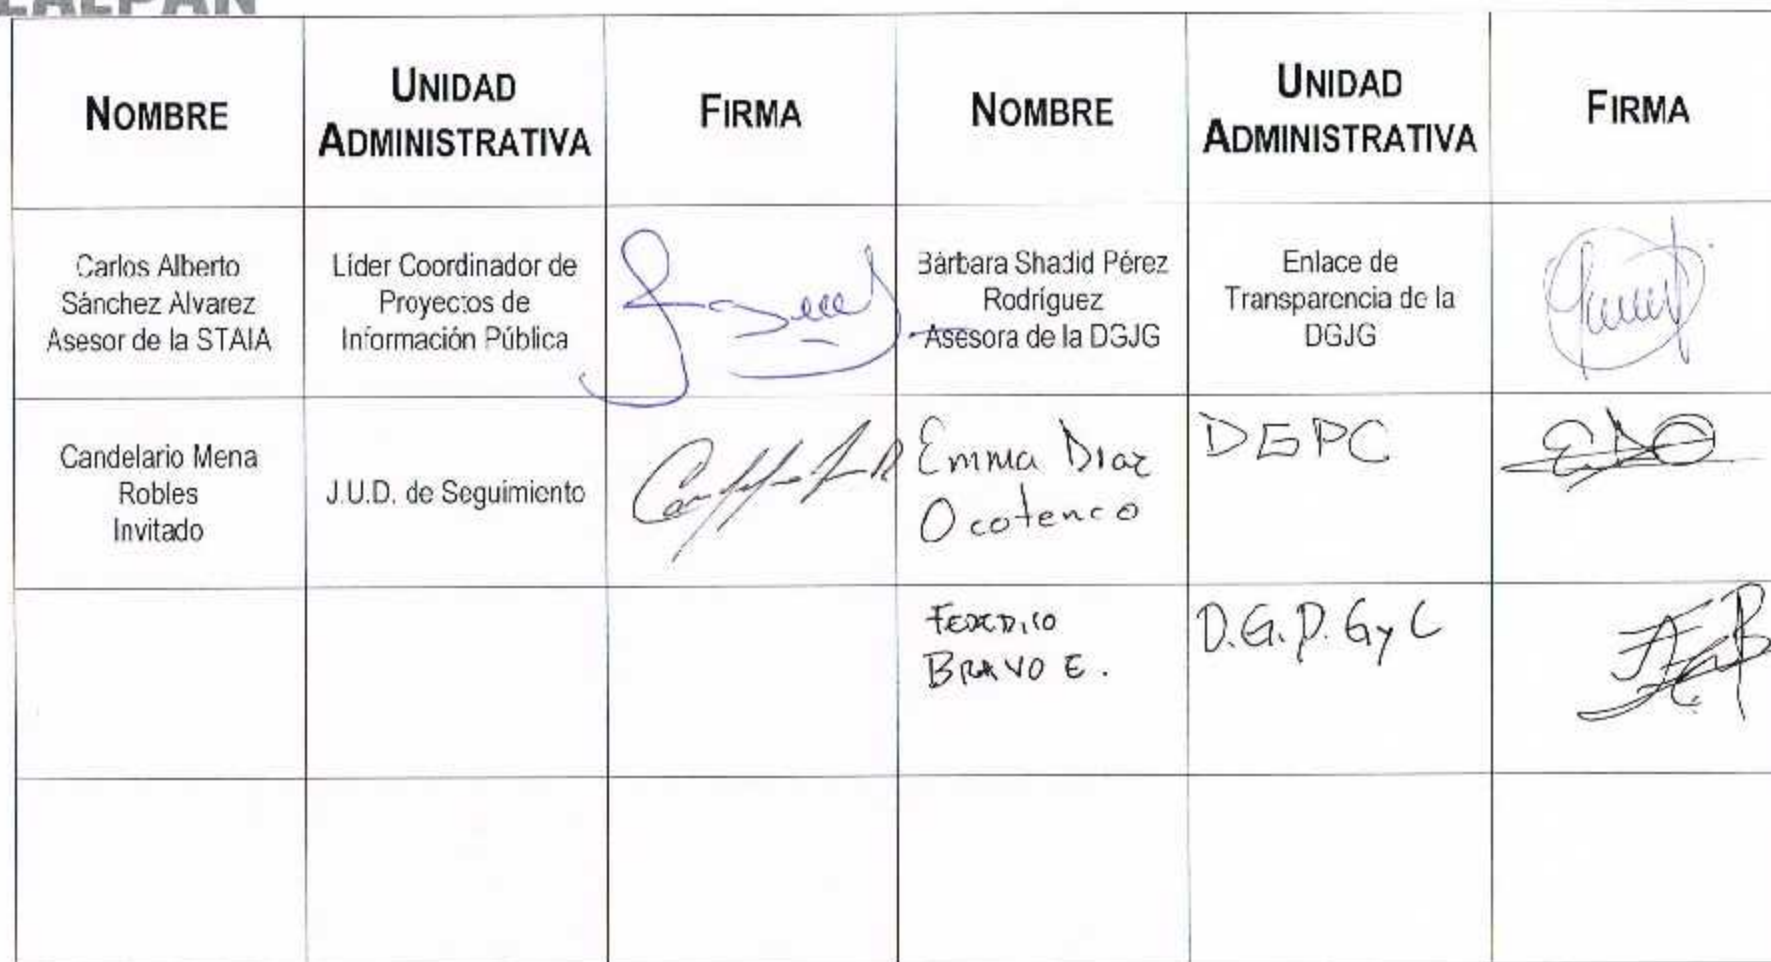 NOMBRE
UNIDAD
ADMINISTRATIVA
FIRMA
NOMBRE
UNIDAD
ADMINISTRATIVA
FIRMA
Carlos Alberto
Sánchez Alvarez
Asesor de la STAIA
Líder Coordinador de
Proyectos de
Información Pública
Bárbara Shadid Pérez
Rodríguez
Asesora de la DGJG
Enlace de
Transparencia de la
DGJG
Candelario Mena
Robles
Invitado
J.U.D. de Seguimiento
Emma Diaz
Ocotenco
DGPC
FEDERICO
BRAVO E.
D.G.P. G y C